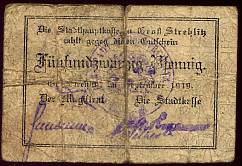 Die Stadthauptkasse in Groß Strehlitz
zahlt gegen diesen Gutschein
Fünfundzwanzig Pfennig.
Groß Strehlitz, im September 1919.
Der Magistrat Die Stadtkasse